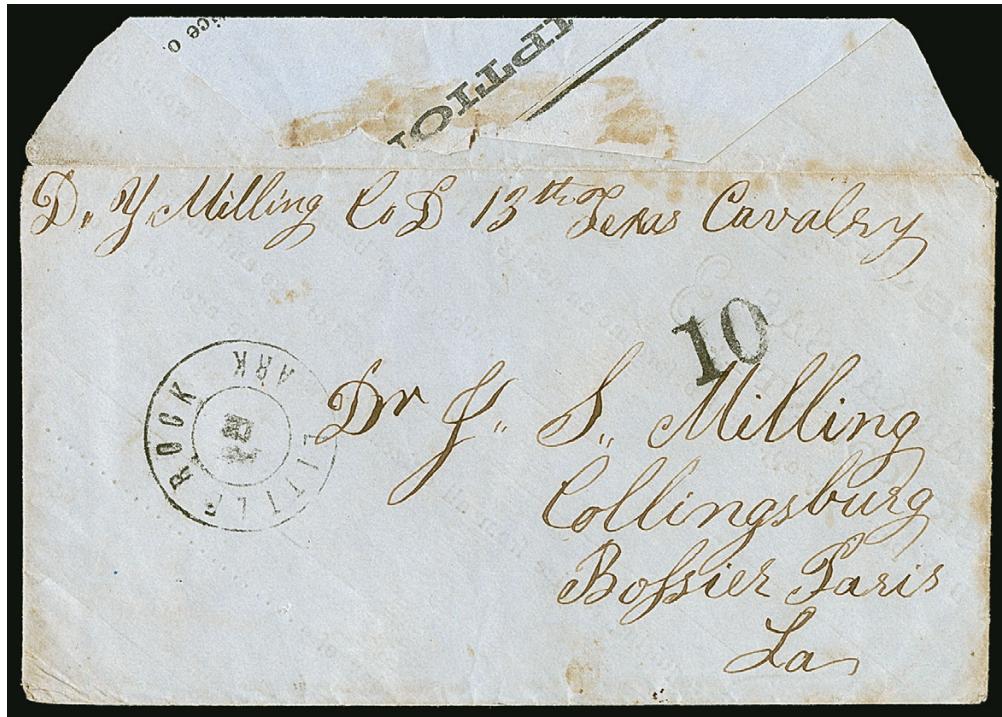 ice o
UPTION
D. Y. Milling Co D 13th Texas Cavalry
10
LITTLE ROCK ARK
Dr J. S. Milling
Collingsburg
Bossier Paris
La